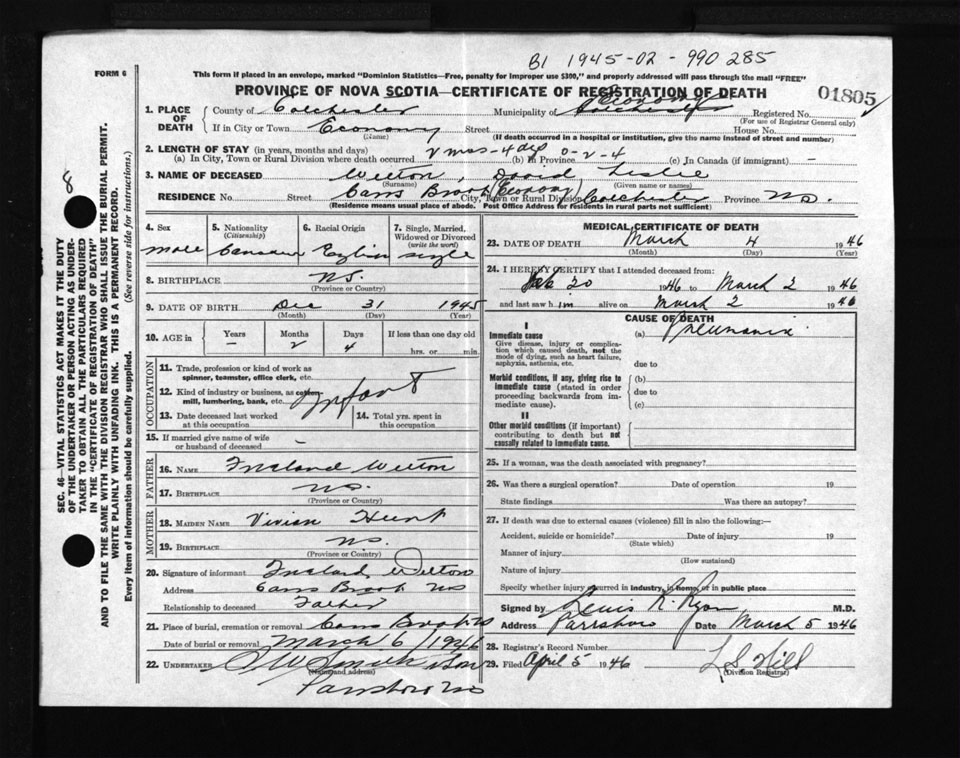 B1 1945-02-990285
FORM 6
This form if placed in an envelope, marked "Dominion Statistics—Free, penalty for improper use $300," and properly addressed will pass through the mail "FREE"
PROVINCE OF NOVA SCOTIA—CERTIFICATE OF REGISTRATION OF DEATH
01805
1. PLACE OF DEATH
County of Colchester Municipality of Economy Colchester Registered No.
(For use of Registrar General only)
If in City or Town Economy Street House No.
(Name) (If death occurred in a hospital or institution, give its name instead of street and number)
2. LENGTH OF STAY (in years, months and days)
(a) In City, Town or Rural Division where death occurred 2 mos - 4 dys (b) in Province 0-2-4 (c) in Canada (if immigrant) —
3. NAME OF DECEASED Welton, David Leslie
(Surname) (Given name or names)
RESIDENCE No. Street Carrs Brook (Economy) City, Town or Rural Division Colchester Province N.S.
(Residence means usual place of abode. Post Office Address for residents in rural parts not sufficient)
4. Sex
male
5. Nationality (Citizenship)
Canadian
6. Racial Origin
English
7. Single, Married, Widowed or Divorced (write the word)
single
8. BIRTHPLACE N.S.
(Province or Country)
9. DATE OF BIRTH Dec 31 1945
(Month) (Day) (Year)
10. AGE in Years Months Days If less than one day old
— 2 4 hrs. or min.
OCCUPATION
11. Trade, profession or kind of work as spinner, teamster, office clerk, etc.
12. Kind of industry or business, as cotton-mill, lumbering, bank, etc. Infant
13. Date deceased last worked at this occupation
14. Total yrs. spent in this occupation
15. If married give name of wife or husband of deceased —
FATHER
16. NAME Welton
17. BIRTHPLACE N.S.
(Province or Country)
MOTHER
18. MAIDEN NAME Vivian Hunt
19. BIRTHPLACE N.S.
(Province or Country)
20. Signature of informant Welton
Address Carrs Brook N.S.
Relationship to deceased Father
21. Place of burial, cremation or removal Carrs Brook N.S.
Date of burial or removal March 6/1946
22. UNDERTAKER Smith & Son
(Name and address)
Parrsboro N.S.
MEDICAL CERTIFICATE OF DEATH
23. DATE OF DEATH March 4 1946
(Month) (Day) (Year)
24. I HEREBY CERTIFY that I attended deceased from:
Feb 20 1946 to March 2 1946
and last saw him alive on March 2 1946
CAUSE OF DEATH
I
Immediate cause (a) Pneumonia
Give disease, injury or complication which caused death, not the mode of dying, such as heart failure, asphyxia, asthenia, etc.
due to
Morbid conditions, if any, giving rise to immediate cause (stated in order proceeding backwards from immediate cause).
(b)
due to
(c)
II
Other morbid conditions (if important) contributing to death but not causally related to immediate cause.
25. If a woman, was the death associated with pregnancy?
26. Was there a surgical operation? Date of operation 19
State findings Was there an autopsy?
27. If death was due to external causes (violence) fill in also the following:—
Accident, suicide or homicide? Date of injury 19
(State which)
Manner of injury
(How sustained)
Nature of injury
Specify whether injury occurred in industry, in home or in public place
Signed by Lewis R. Ryan M.D.
Address Parrsboro Date March 5 1946
28. Registrar's Record Number
29. Filed April 5 1946 L S Hill
(Division Registrar)
8
SEC. 46—VITAL STATISTICS ACT MAKES IT THE DUTY
OF THE UNDERTAKER OR PERSON ACTING AS UNDERTAKER TO OBTAIN ALL THE PARTICULARS REQUIRED
IN THE "CERTIFICATE OF REGISTRATION OF DEATH"
AND TO FILE THE SAME WITH THE DIVISION REGISTRAR WHO SHALL ISSUE THE BURIAL PERMIT.
WRITE PLAINLY WITH UNFADING INK. THIS IS A PERMANENT RECORD.
Every item of information should be carefully supplied. (See reverse side for instructions.)